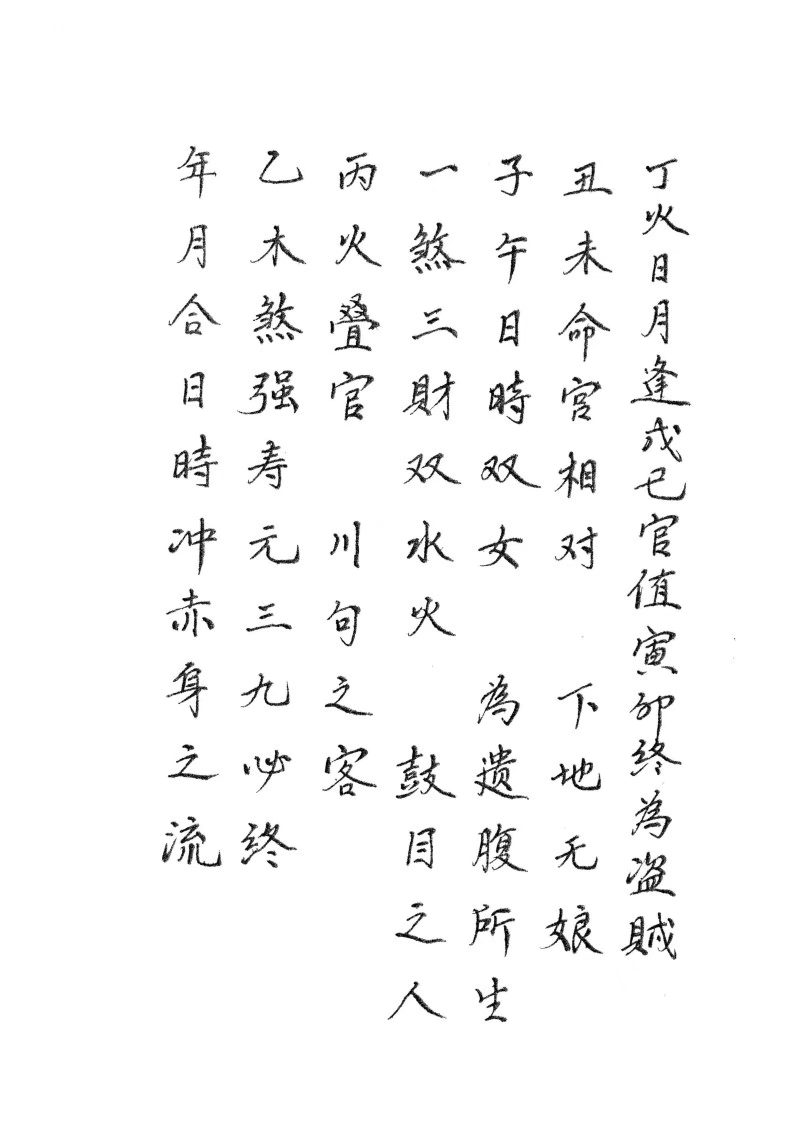 丁火日月逢戊己官值寅卯終為盗賊
丑未命宫相对 下地无娘
子午日時双女 為遗腹所生
一煞三財双水火 鼓目之人
丙火叠官 川句之客
乙木煞强寿元三九必終
年月合日時冲赤身之流